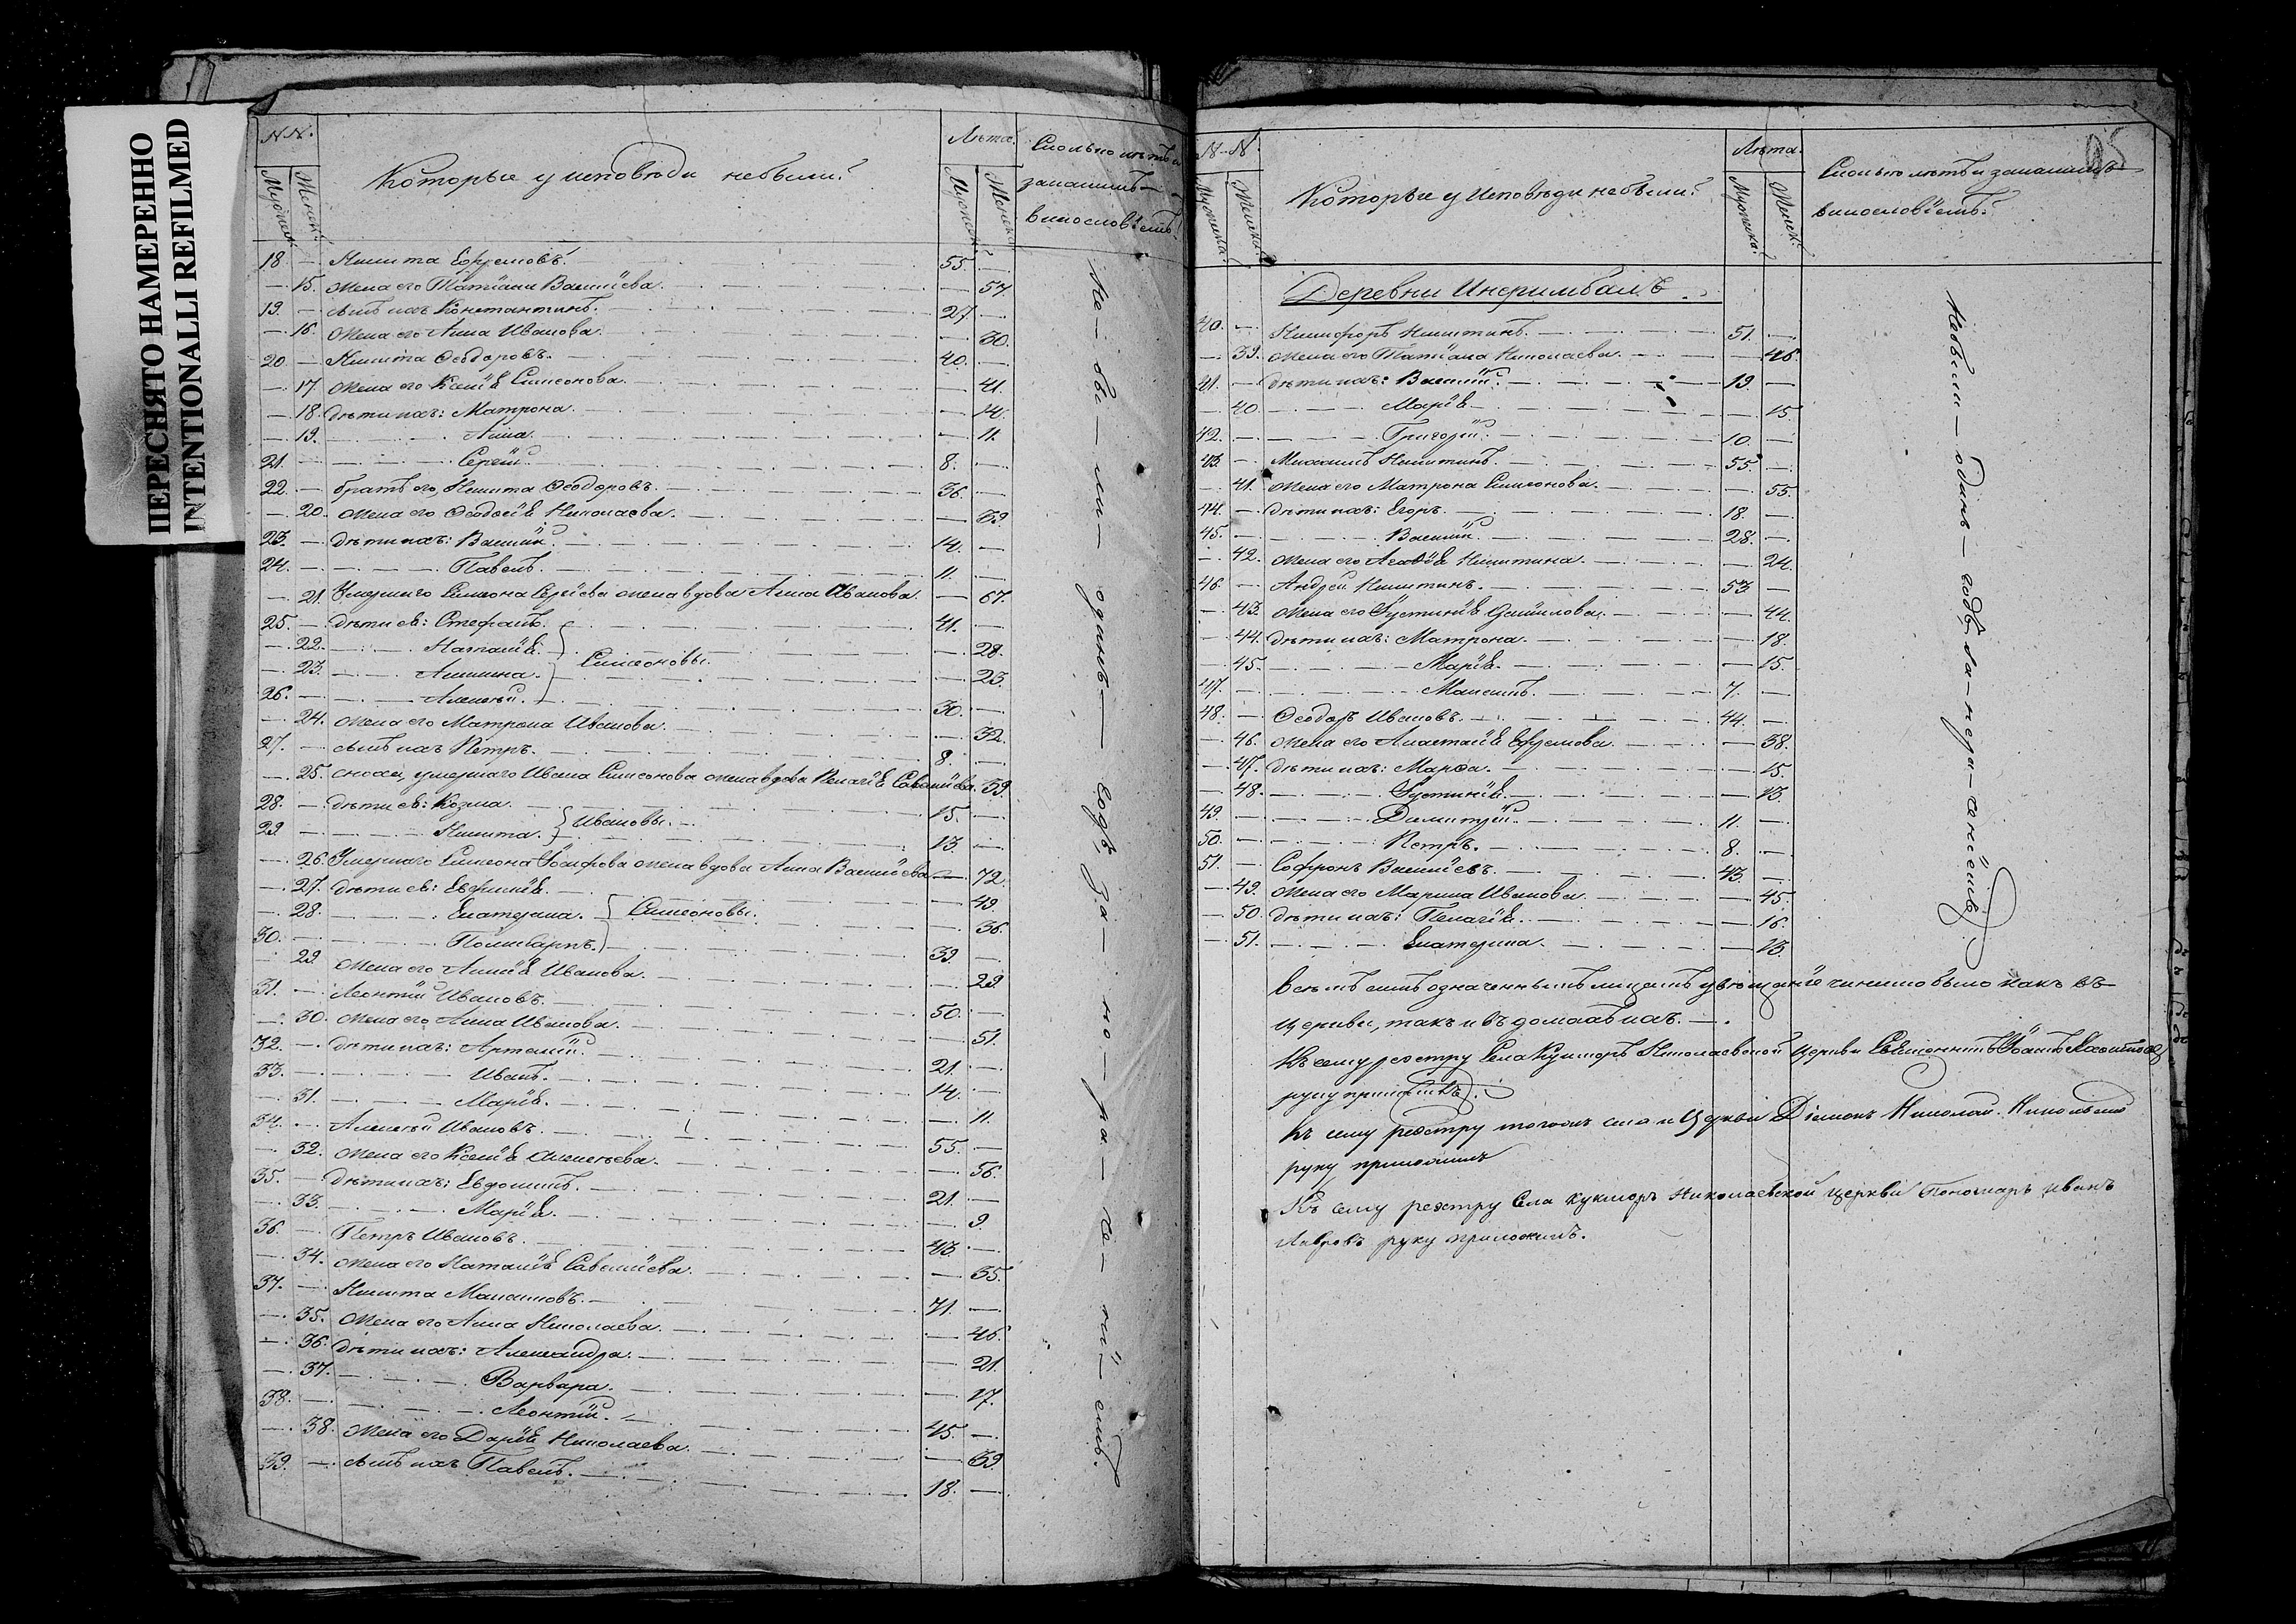 ПЕРЕСНЯТО НАМЕРЕННО
INTENTIONALLI REFILMED
N N.
Мужеск. Женск.
Которые у исповѣди небыли.
Лѣта.
Мужеск. Женск.
Сколько лѣтъ и
закакимъ
винословіемъ.
18 — Никита Ефремовъ. 55. —
— 15. Жена его Татіана Василіева. — 57.
19. — Сынъ ихъ Константинъ. 27. —
— 16. Жена его Анна Иванова. — 30.
20 — Никита Ѳеодоровъ. 40. —
— 17. Жена его Ксенія Симеонова. — 41.
— 18. Дѣти ихъ: Матрона. — 14.
— 19. Анна. — 11.
21. — Сергій. 8. —
22. — братъ его Никита Ѳеодоровъ. 36. —
— 20. Жена его Ѳеодосія Николаева. — 39
23. — Дѣти ихъ: Василій. 14. —
24. — Павелъ. 11. —
— 21. Умершаго Симеона Сергіева жена вдова Анна Иванова. — 67.
25. — Дѣти ея: Стефанъ. 41. —
— 22. Наталія. — 28.
— 23. Акилина. Симеоновы. — 23.
26. — Алексѣй. 30. —
— 24. Жена его Матрона Иванова. — 32.
27. — Сынъ ихъ Петръ. 8. —
— 25. Сноха, умершаго Ивана Симеонова жена вдова Пелагія Савеліева. 39.
28. — Дѣти ея: Козма. 15. —
29. — Никита. Ивановы. 13. —
— 26. Умершаго Симеона Іосифова жена вдова Анна Василіева — 72.
— 27. Дѣти ея: Евфимія. — 49.
— 28. Екатерина. Симеоновы. — 36.
30. — Поликарпъ. 39. —
— 29 Жена его Анисія Иванова. — 29.
31. — Леонтій Ивановъ. 50. —
— 30. Жена его Анна Иванова. — 51.
32. — Дѣти ихъ: Артемій. 21. —
33. Иванъ. 14. —
— 31. Марія. — 11.
34. — Алексѣй Ивановъ. 55. —
— 32. Жена его Ксенія Алексѣева. — 56.
35. — Дѣти ихъ: Евдокимъ. 21. —
— 33. Марія. — 9.
36. — Петръ Ивановъ. 43. —
— 34. Жена его Наталія Савеліева. — 35.
37. — Никита Максимовъ. 71. —
— 35. Жена его Анна Николаева. — 46.
— 36. Дѣти ихъ: Александра. — 21.
— 37. Варвара. — 17.
38. — Леонтій. 45. —
— 38. Жена его Дарія Николаева. — 39.
39. — Сынъ ихъ Павелъ. 18. —
Не — бы — ли — одинъ — годъ, за — не — ра — че — ні — емъ.
95
N-N
Мужеска. Женска.
Которые у Исповѣди небыли.
Лѣта.
Мужеска. Женск.
Сколько лѣтъ и закакимъ
винословіемъ.
Деревни Инеримбалъ.
40. — Никифоръ Никитинъ. 51. —
— 39. Жена его Татіана Николаева. — 46.
41. — Дѣти ихъ: Василій. 19. —
— 40. Марія — 15.
42. — Григорій. 10. —
43. — Михаилъ Никитинъ. 55. —
— 41. Жена его Матрона Симеонова. — 55.
44. — Дѣти ихъ: Егоръ. 18. —
45. — Василій. 28. —
— 42. Жена его Агаѳія Никитина. — 24.
46. — Андрей Никитинъ. 53 —
— 43. Жена его Іустинія Даніилова. — 44.
— 44. Дѣти ихъ: Матрона. — 18.
— 45. Марія. — 15.
47. — Максимъ. 7. —
48. — Ѳеодоръ Ивановъ. 44. —
— 46. Жена его Анастасія Ефремова. — 38.
— 47. Дѣти ихъ: Марѳа. — 15.
— 48. Іустинія. — 13.
49. — Димитрій. 11. —
50. — Петръ. 8. —
51. — Софронъ Василіевъ. 43. —
— 49. Жена его Марина Иванова. — 45.
— 50. Дѣти ихъ: Пелагія. — 16.
— 51. Екатерина. — 13.
Небыли — одинъ — годъ, за — нера — ченіемъ
Всѣмъ симъ означеннымъ лицамъ увѣщаніе чинено было какъ въ
церкви, такъ и въ домахъ ихъ. —
Къ сему реэстру Села Кукморъ Николаевской церкви Священникъ Іоаннъ
руку приложилъ.
Къ сему реэстру тогожъ села и Церкви Діаконъ Николай Никольскій
руку приложилъ
Къ сему реэстру Села Кукморъ Николаевской церкви Пономарь Иванъ
Лавровъ руку приложилъ.